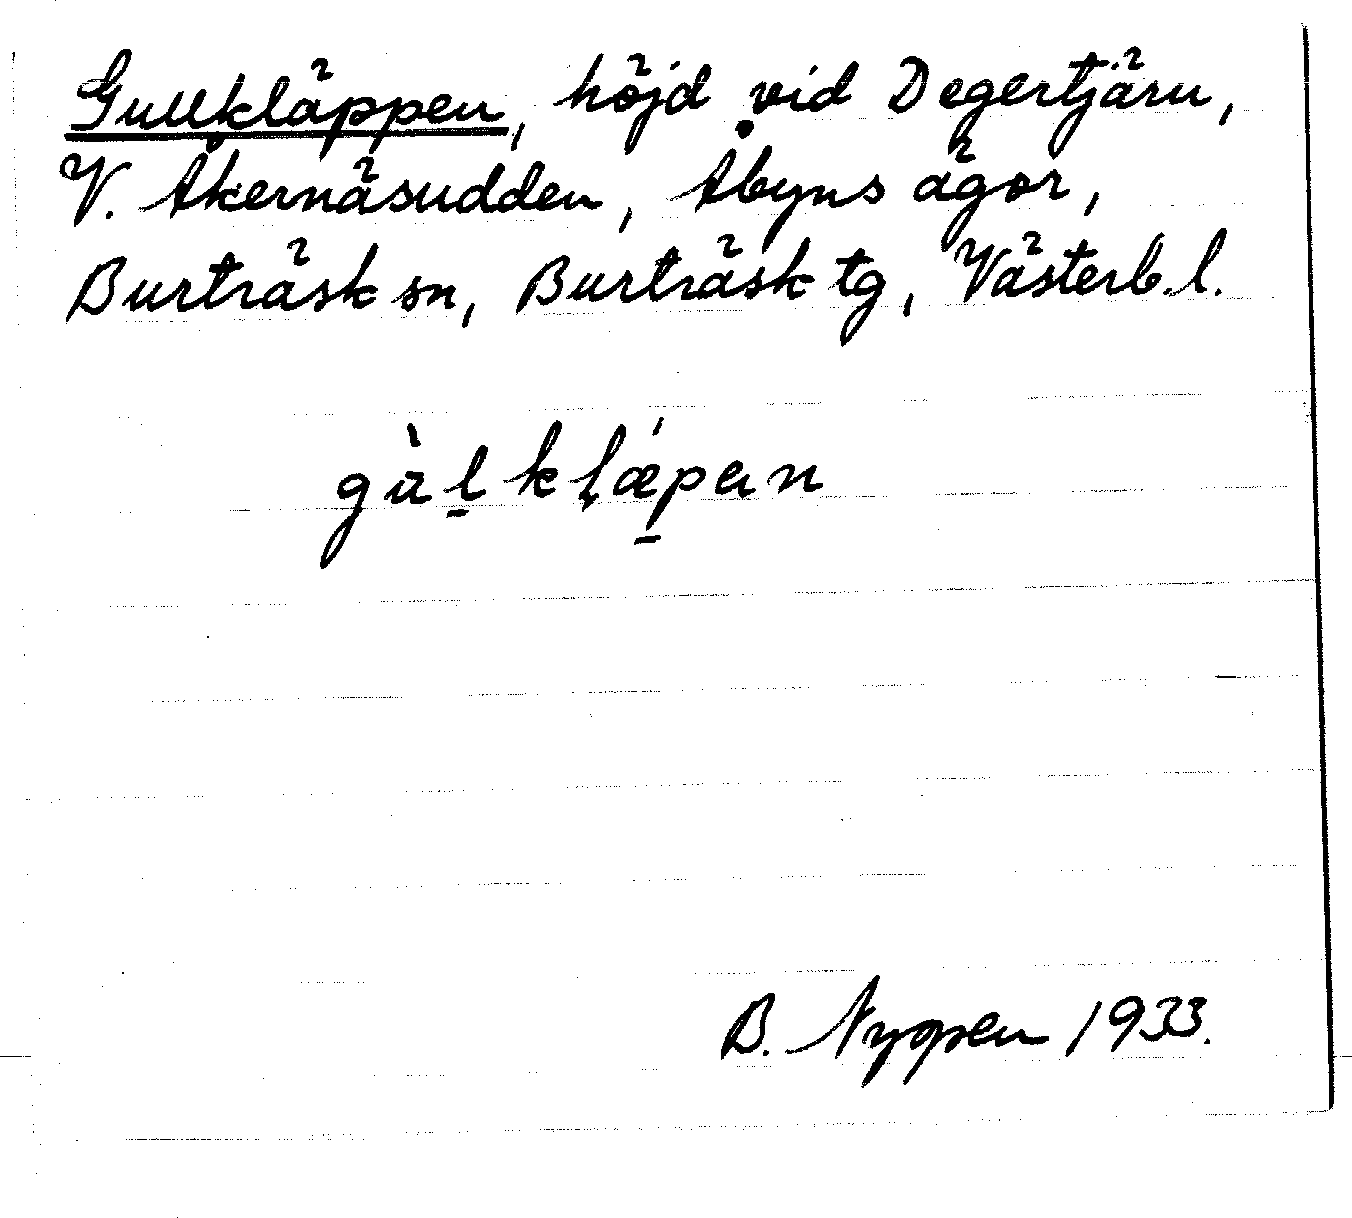 Gullkläppen, höjd vid Degertjärn,
V. Åkernäsudden, Åbyns ägor,
Burträsk sn, Burträsk tg, Västerb. l.
gùl̠kḷǽ̠pɐn
B. Nygren 1933.